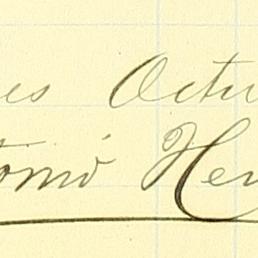 es Octu
tomó Her